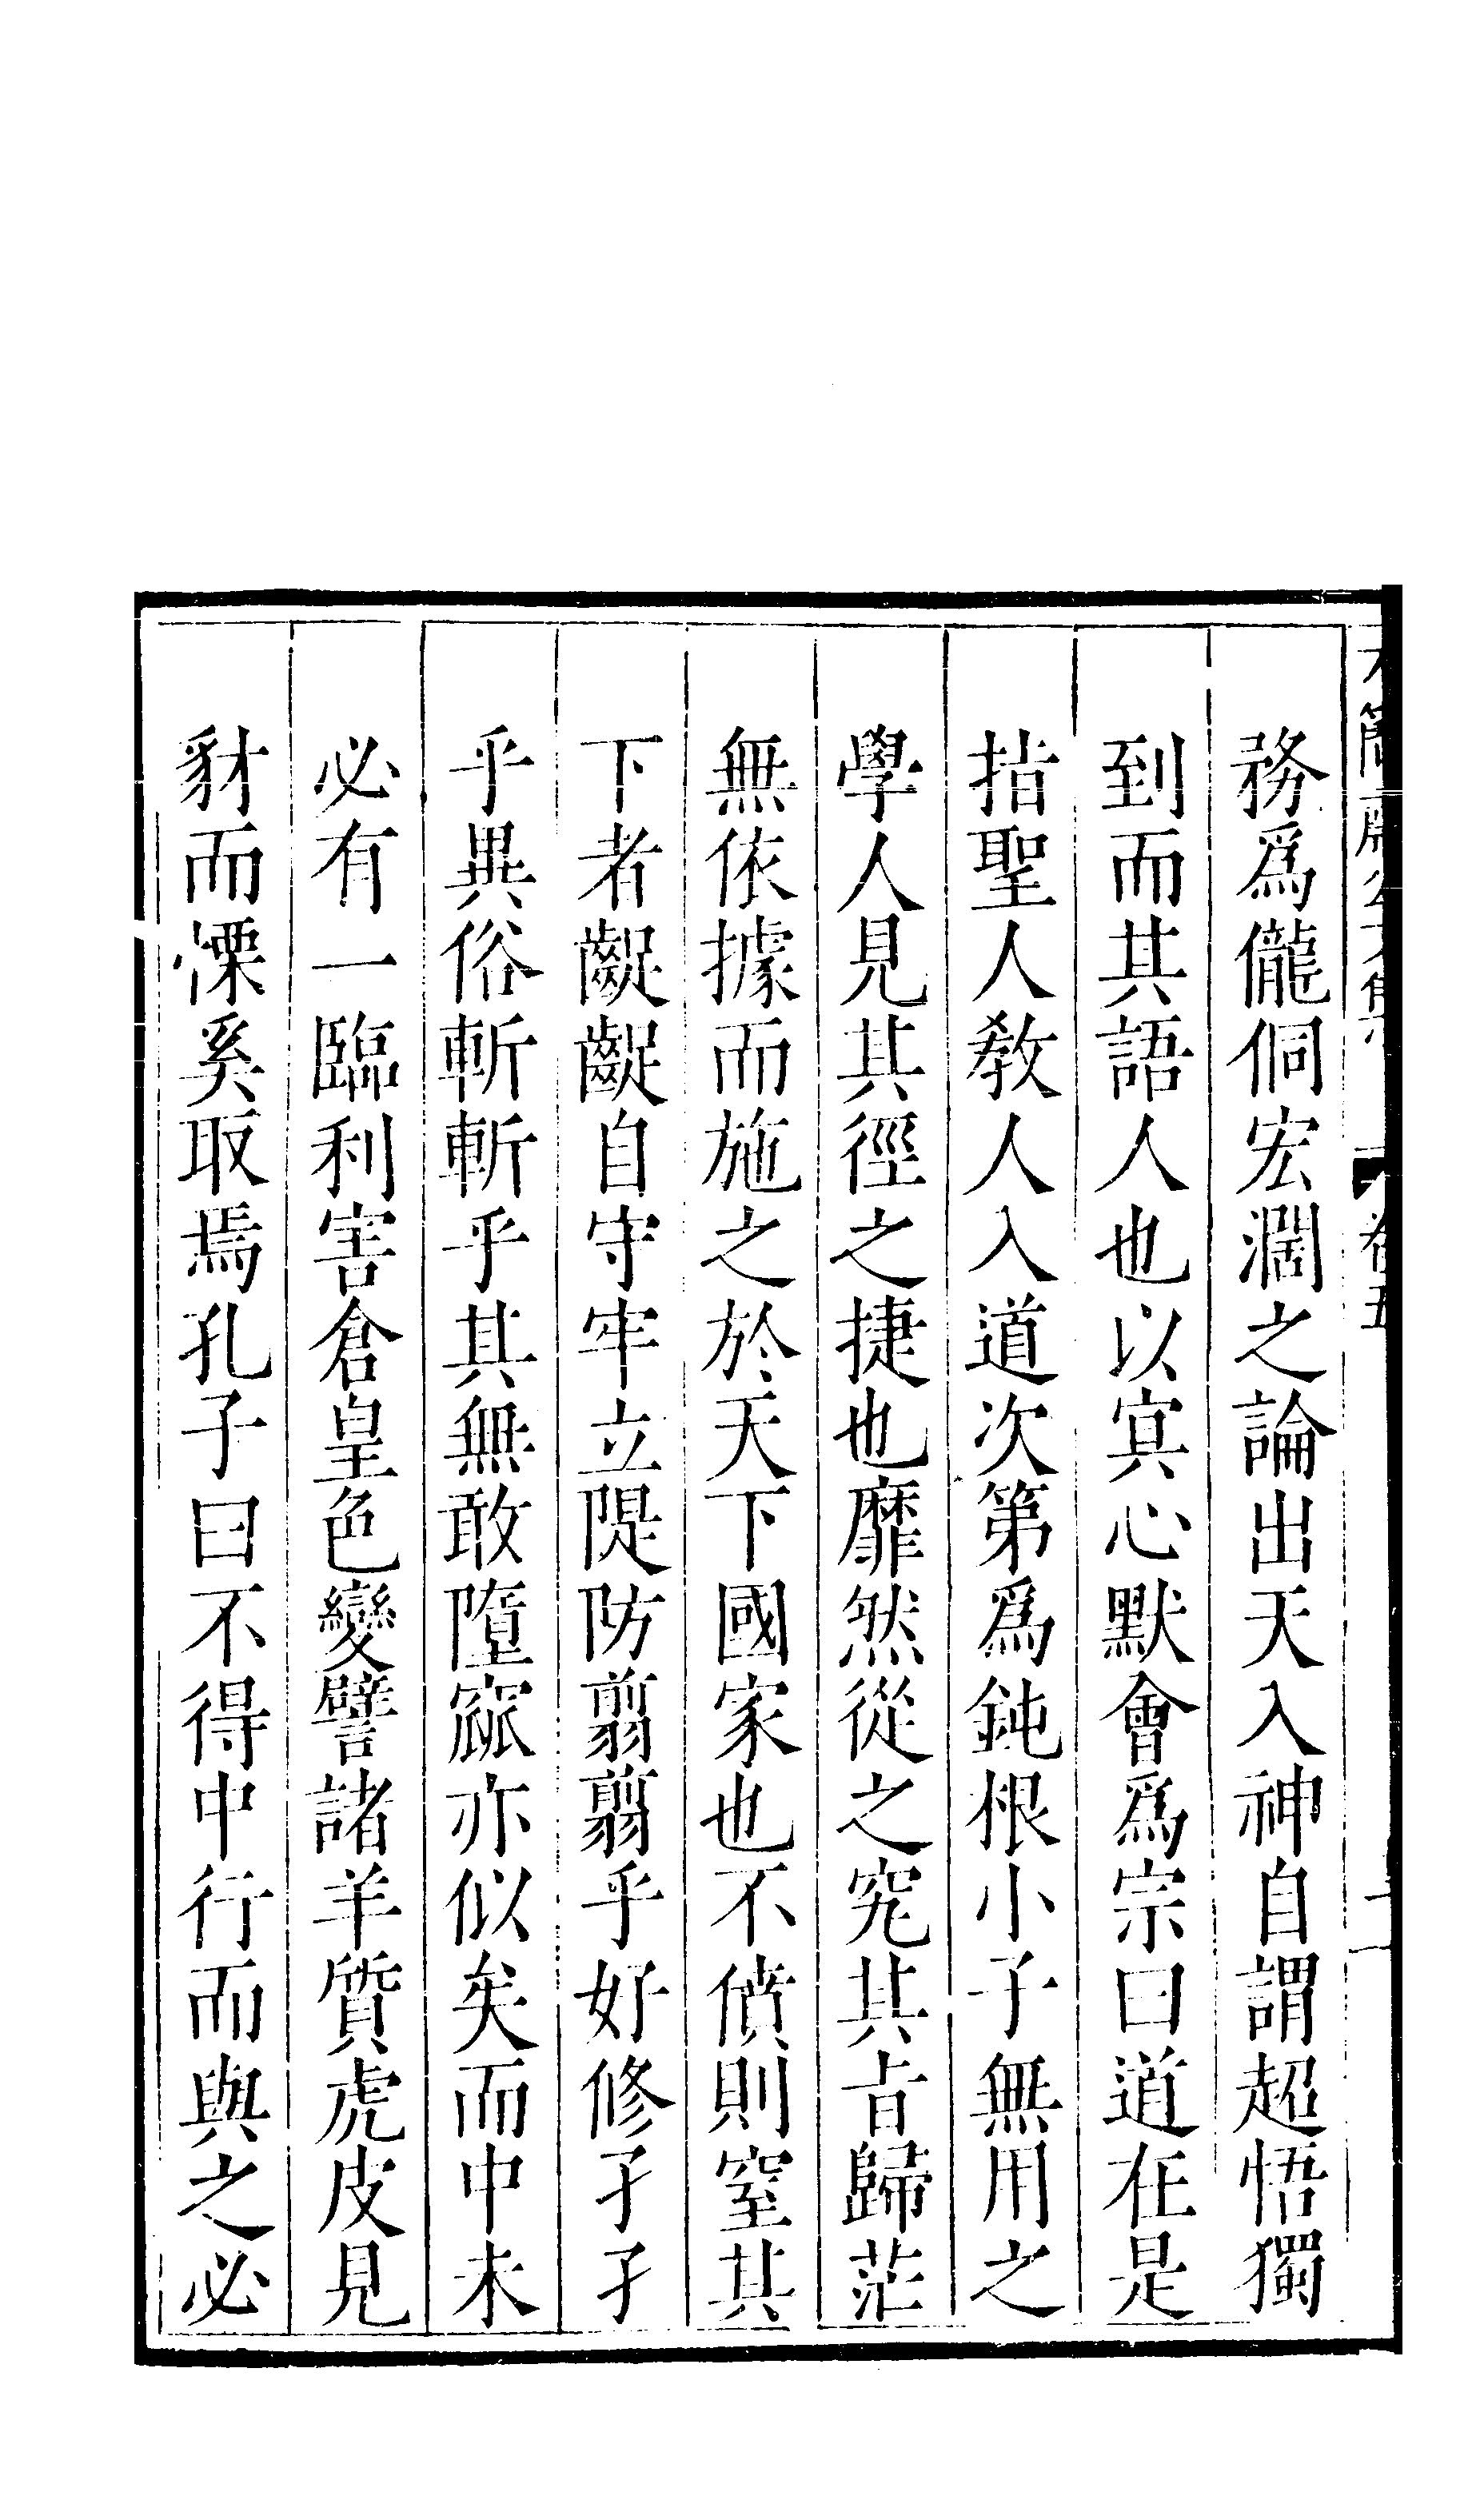 務爲儱侗宏濶之論出天入神自謂超悟獨
到而其語人也以㝠心默會爲宗曰道在是
指聖人敎人入道次第爲鈍根小子無用之
學人見其徑之捷也靡然從之究其㫖歸茫
無依據而施之於天下國家也不僨則窒其
下者齪齪自守牢立隄防翦翦乎好修孑孑
乎異俗斬斬乎其無敢墮窳亦似矣而中未
必有一臨利害倉皇色變譬諸羊質虎皮見
豺而慄奚取焉孔子曰不得中行而與之必
卷五